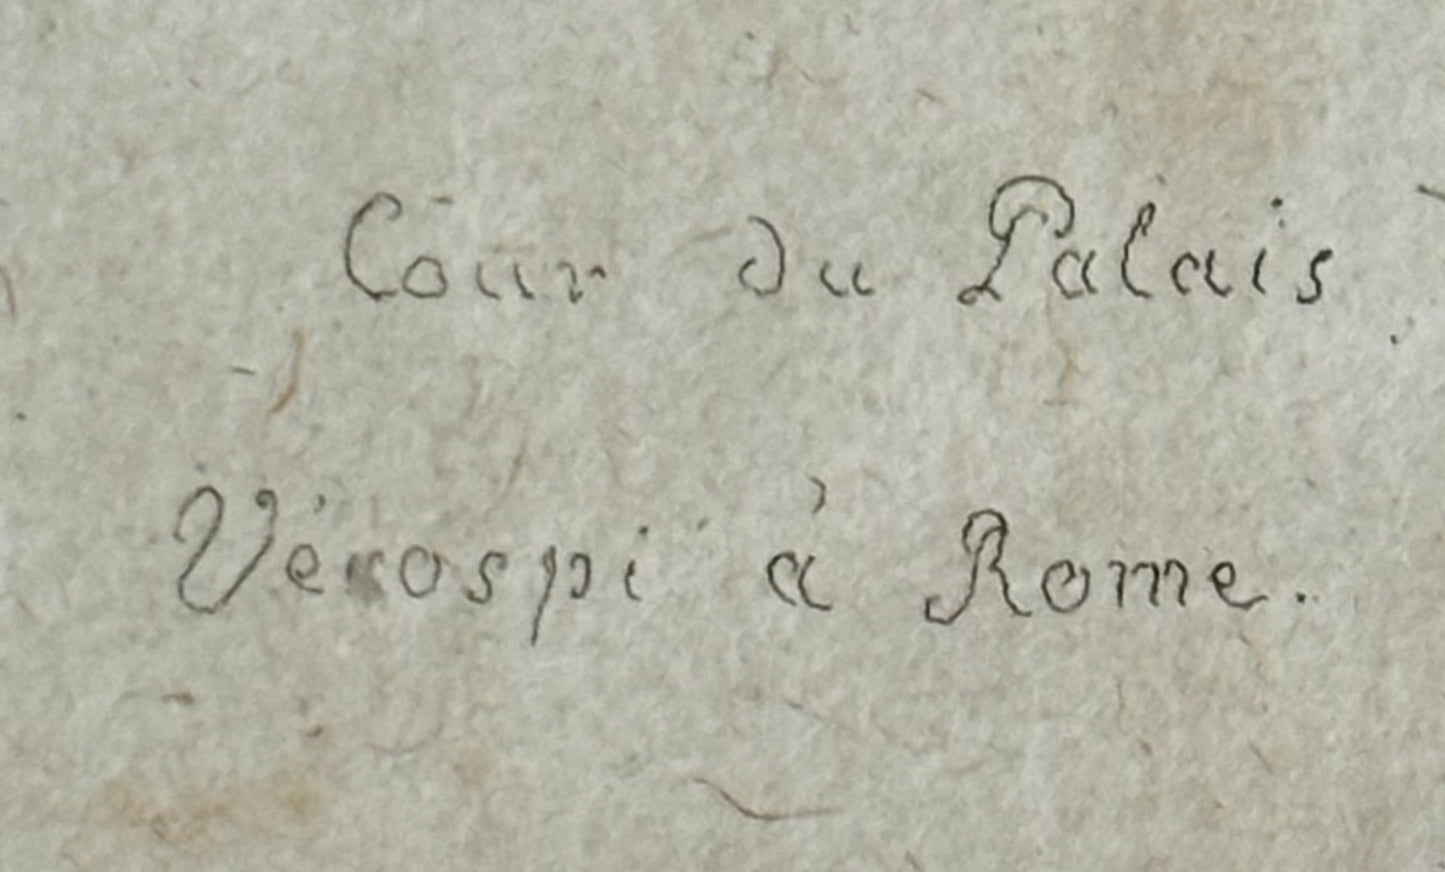 Cour du Palais
Vérospi à Rome.